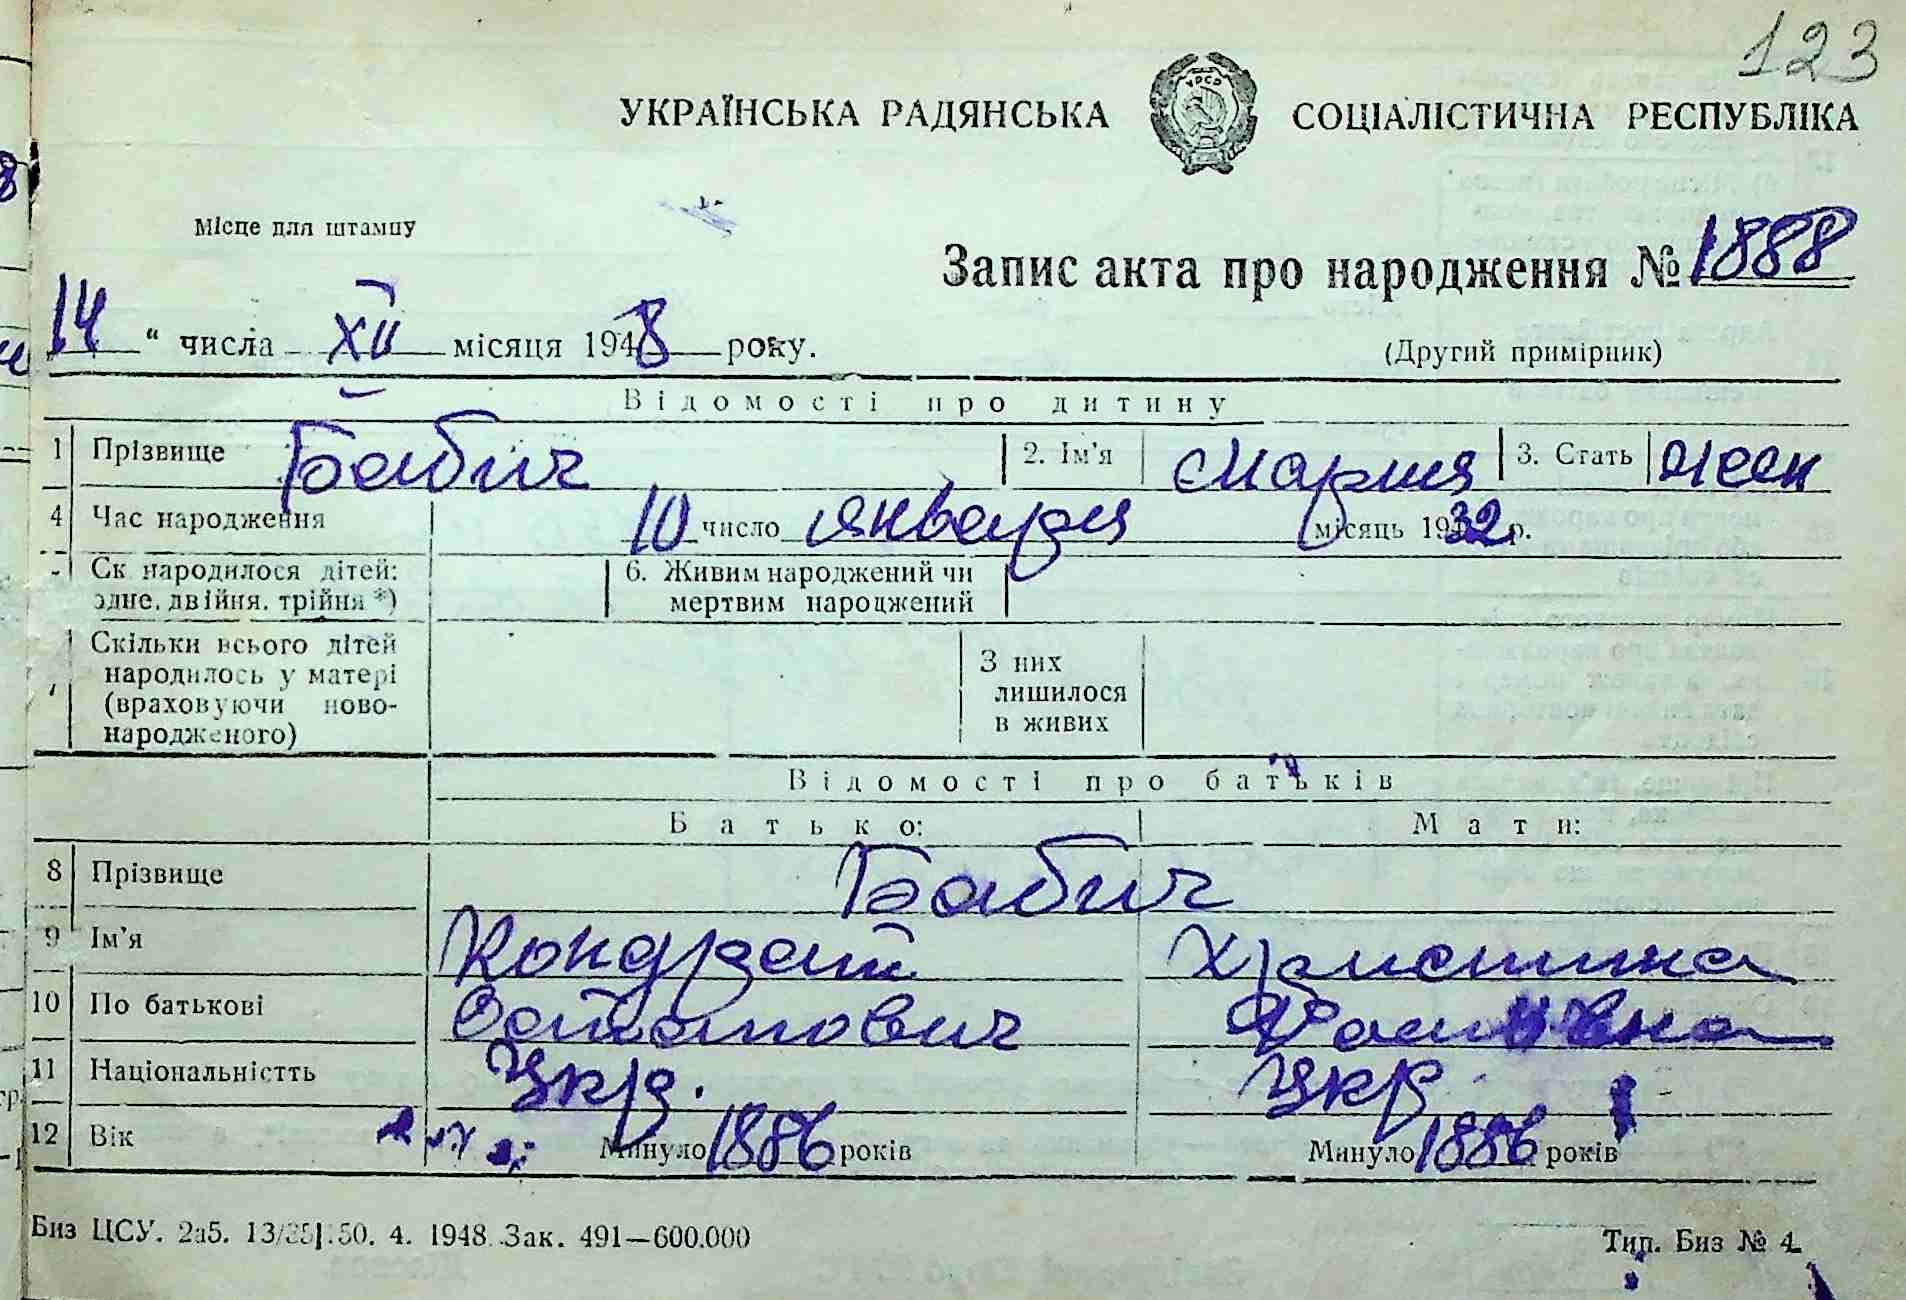 123
УКРАЇНСЬКА РАДЯНСЬКА СОЦІАЛІСТИЧНА РЕСПУБЛІКА
УРСР
Місце для штампу
Запис акта про народження № 1888
14 " числа XII місяця 1948 року.
(Другий примірник)
Відомості про дитину
1 Прізвище Бабич 2. Ім'я Мария 3. Стать жен
4 Час народження 10 число января місяць 1932 р.
Ск народилося дітей: 6. Живим народжений чи
одне, двійня, трійня *) мертвим народжений
Скільки всього дітей
народилось у матері
(враховуючи ново-
народженого)
З них
лишилося
в живих
7
Відомості про батьків
Батько: Мати:
8 Прізвище Бабич
9 Ім'я Кондрат Христина
10 По батькові Остапович
11 Національністть Укр. Укр.
12 Вік Минуло 1886 років Минуло 1886 років
Биз ЦСУ. 2а5. 50. 4. 1948. Зак. 491—600.000
Тип. Биз № 4